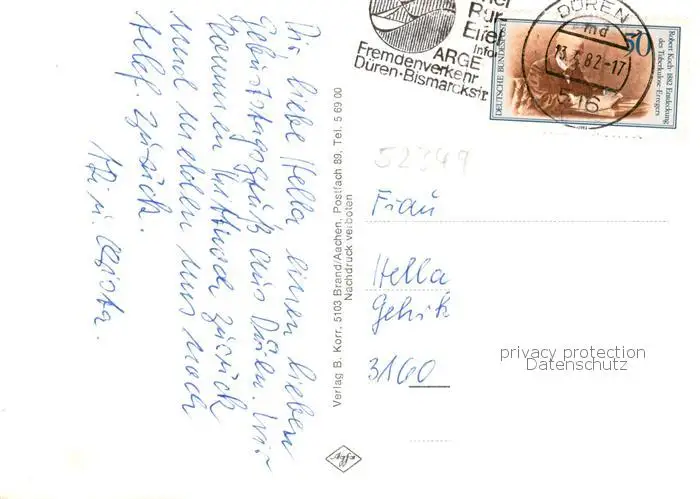 Dir liebe Hella einen lieben
Geburtstagsgruß aus Düren. Wir
kommen Mittwoch zurück
und melden uns nach
zurück.
Verlag B. Korr, 5103 Brand/Aachen, Postfach 89, Tel. 5 69 00
Nachdruck verboten
Rur-
Eifel
Info:
ARGE
Fremdenverkehr
Düren·Bismarckstr.
DÜREN 1
516
DEUTSCHE BUNDESPOST
50
Robert Koch · 1882 Entdeckung
des Tuberkulose-Erregers
52349
Frau
Hella
3160
privacy protection
Datenschutz